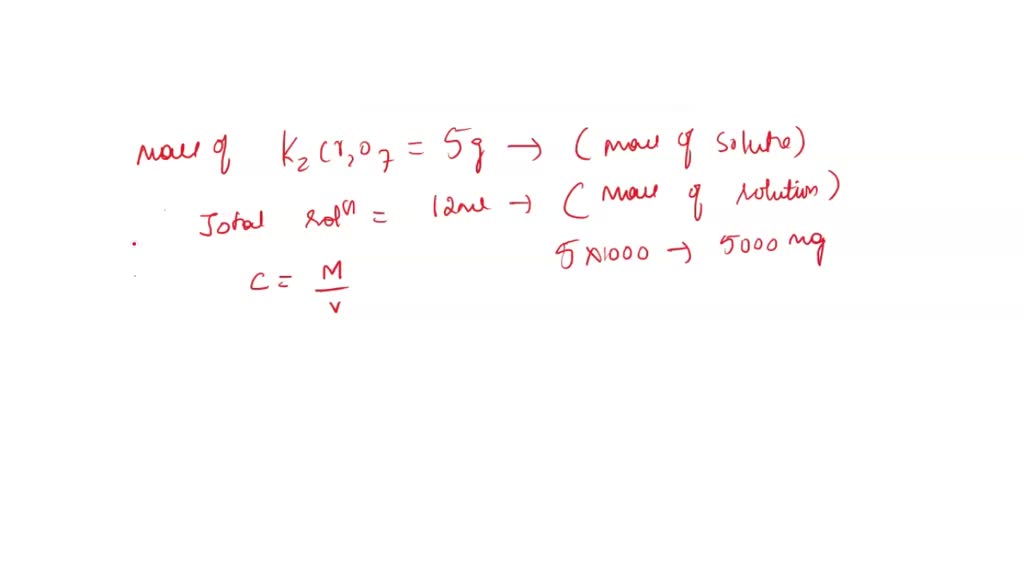 mass of K₂Cr₂O₇ = 5g → (mass of solute)
Total solⁿ = 12ml → (mass of solution)
5×1000 → 5000 mg
C = M/V